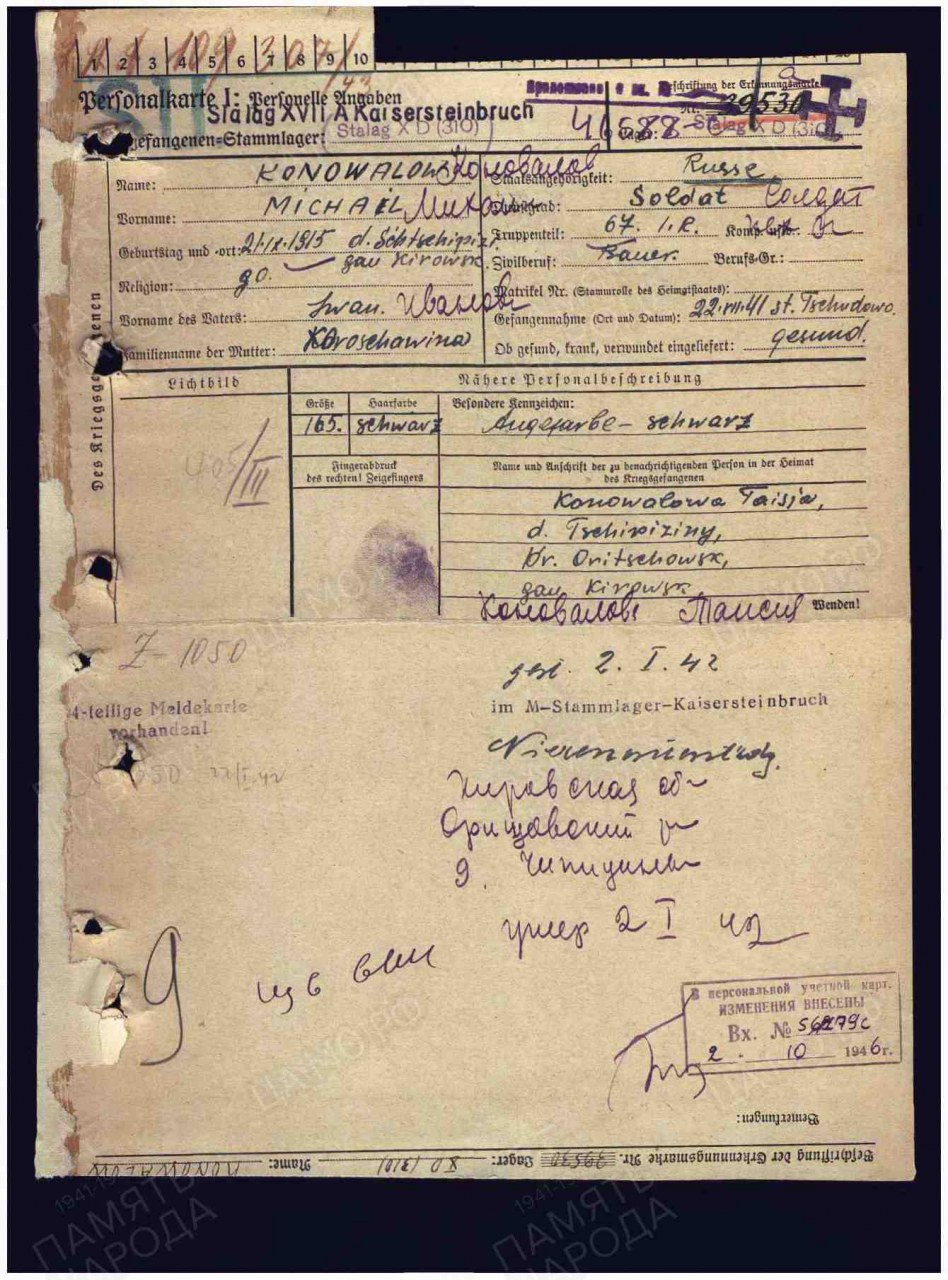 1 2 3 4 5 6 7 8 9 10
109 307/42
Personalkarte I: Personelle Angaben
Stalag XVII A Kaisersteinbruch
Kriegsgefangenen-Stammlager: Stalag X D (310)
Beschriftung der Erkennungsmarke
Nr. 39530
Lager: Stalag X D (310)
Des Kriegsgefangenen
Name: KONOWALOW Коновалов
Vorname: MICHAIL Михаил
Geburtstag und -ort: 21.IX.1915
gau Kirowsk.
Religion: go.
Vorname des Vaters: Iwan. Иванов
Familienname der Mutter: Koroschawina
Staatsangehörigkeit: Russe
Dienstgrad: Soldat Солдат
Truppenteil: 67. I.R. Komp. usw.:
Zivilberuf: Bauer. Berufs-Gr.:
Matrikel Nr. (Stammrolle des Heimatstaates):
Gefangennahme (Ort und Datum): 22.VIII.41 st. Tschudowo.
Ob gesund, krank, verwundet eingeliefert: gesund.
Lichtbild
/III
Nähere Personalbeschreibung
Größe Haarfarbe Besondere Kennzeichen:
165. schwarz Augefarbe – schwarz
Fingerabdruck
des rechten! Zeigefingers
Name und Anschrift der zu benachrichtigenden Person in der Heimat
des Kriegsgefangenen
Konowalowa Taisja,
d. Tschipiziny,
Kr. Oritschowsk,
gau Kirowsk
Коновалова Таисия
Wenden!
Z-1050
4-teilige Meldekarte
vorhanden!
22/I.42
gest. 2. I. 42
im M-Stammlager-Kaisersteinbruch
Кировская об
Оричовский р
д. Чипицины
умер 2 I 42
9
В персональной учетной карт.
ИЗМЕНЕНИЯ ВНЕСЕНЫ
Вх. №
2. 10 1946г.
Bemerkungen:
Beschriftung der Erkennungsmarke Nr. 39530 Lager: XD (310) Name: KONOWALOW